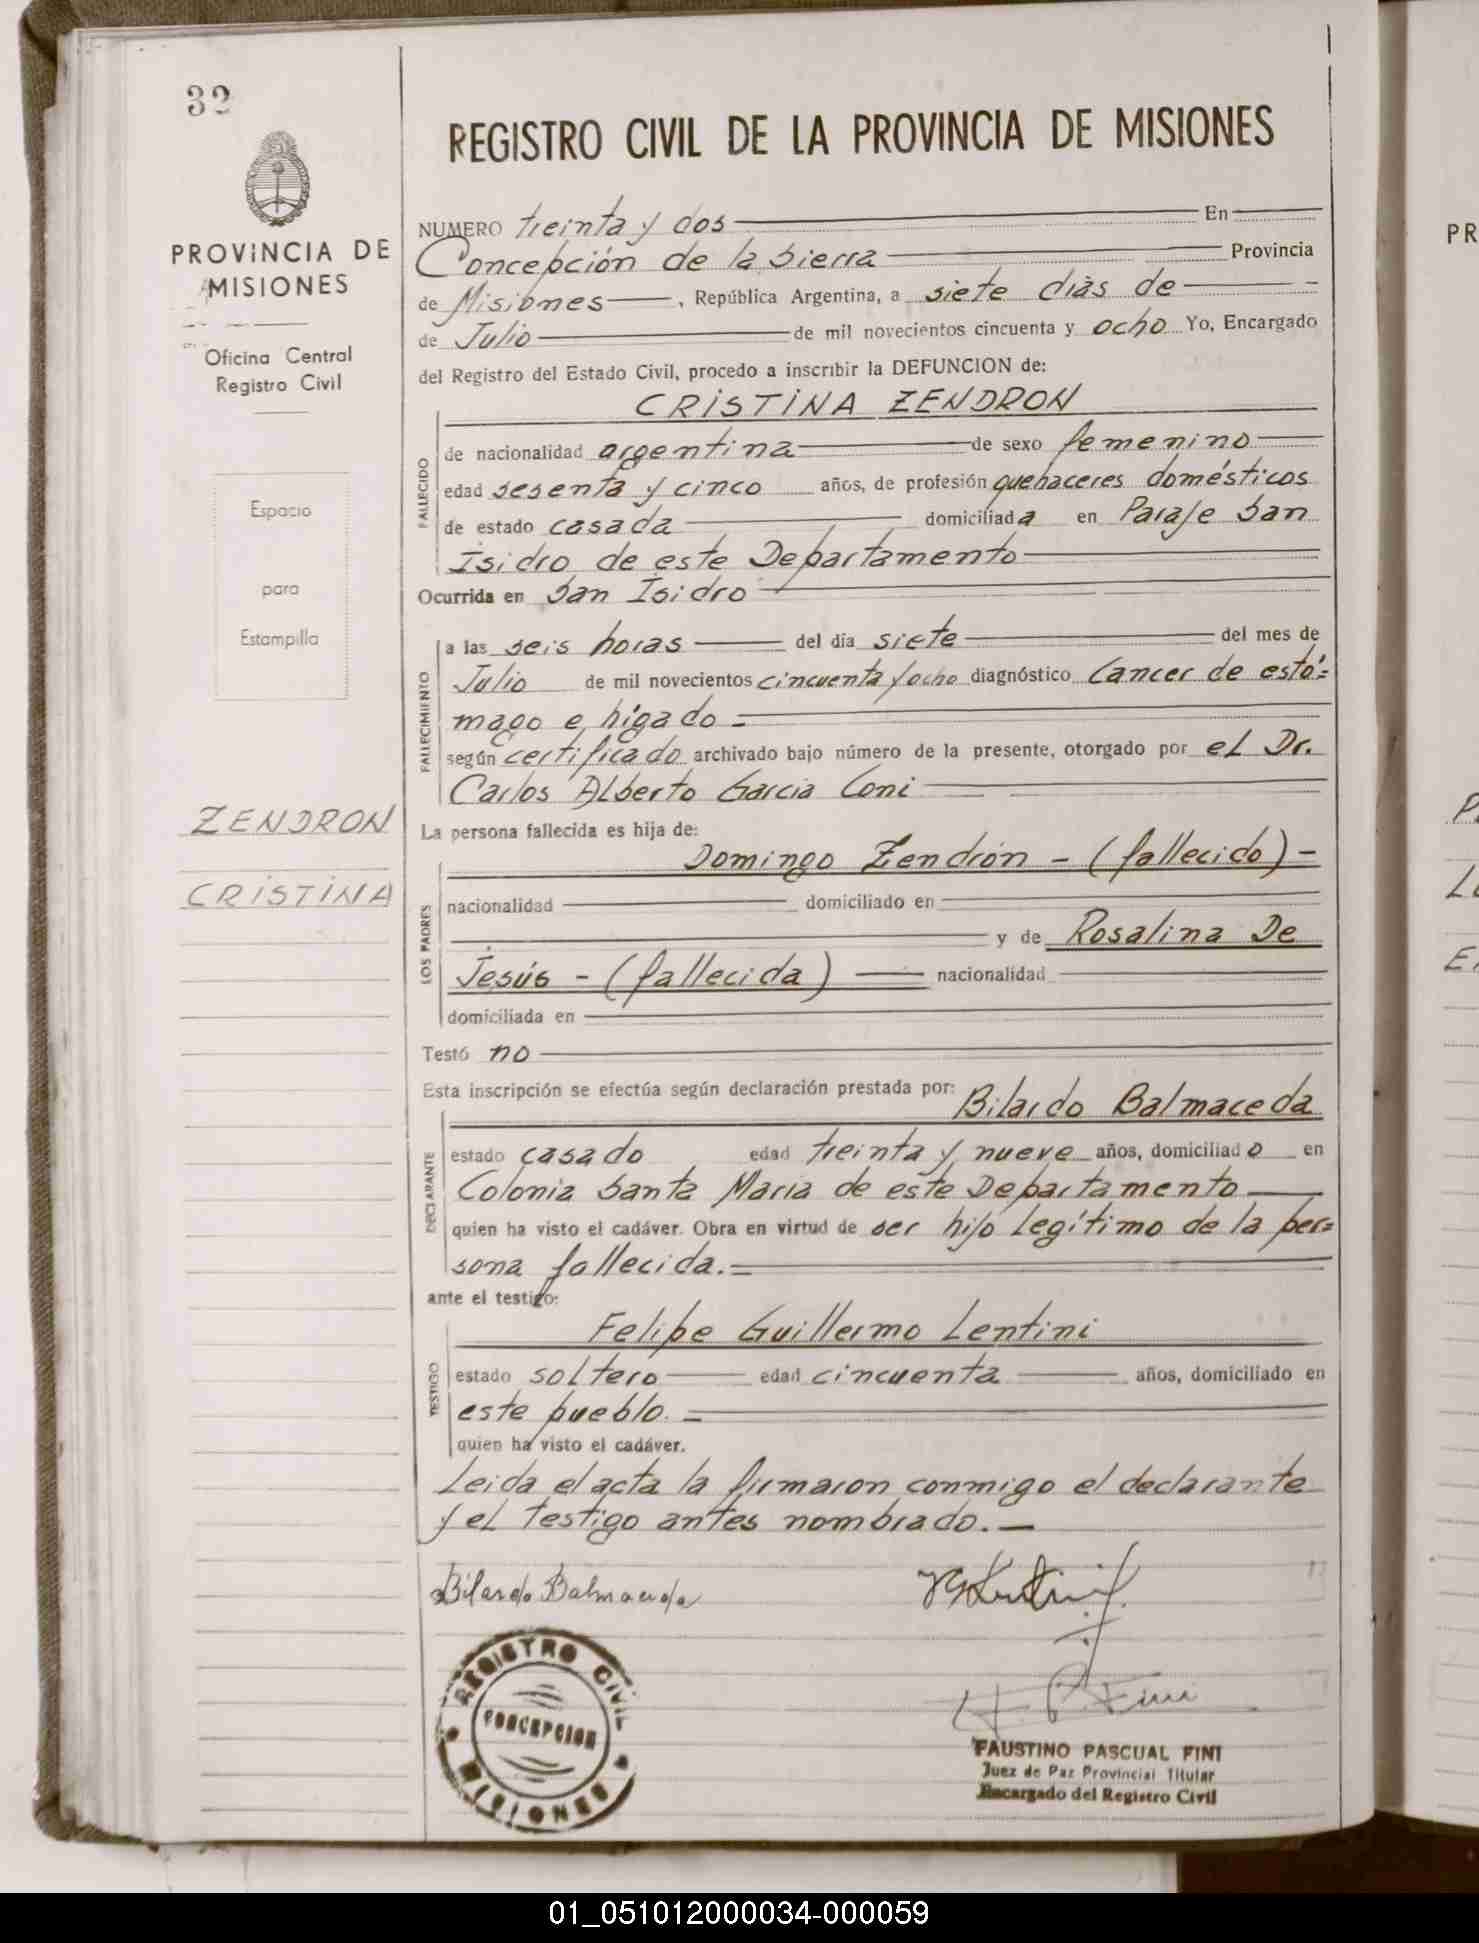 32
PROVINCIA DE
MISIONES
Oficina Central
Registro Civil
Espacio
para
Estampilla
ZENDRON
CRISTINA
REGISTRO CIVIL DE LA PROVINCIA DE MISIONES
NUMERO treinta y dos En
Concepción de la Sierra Provincia
de Misiones, República Argentina, a siete dias de
de Julio de mil novecientos cincuenta y ocho Yo, Encargado
del Registro del Estado Civil, procedo a inscribir la DEFUNCION de:
CRISTINA ZENDRON
FALLECIDO
de nacionalidad argentina de sexo femenino
edad sesenta y cinco años, de profesión quehaceres domésticos
de estado casada domiciliada en Paraje San
Isidro de este Departamento
Ocurrida en San Isidro
FALLECIMIENTO
a las seis horas del día siete del mes de
Julio de mil novecientos cincuenta y ocho diagnóstico Cancer de estó=
mago e hígado =
según certificado archivado bajo número de la presente, otorgado por el Dr.
Carlos Alberto Garcia Coni
La persona fallecida es hija de:
LOS PADRES
Domingo Zendrón - (fallecido) -
nacionalidad domiciliado en
y de Rosalina De
Jesús - (fallecida) nacionalidad
domiciliada en
Testó no
Esta inscripción se efectúa según declaración prestada por: Bilardo Balmaceda
DECLARANTE
estado casado edad treinta y nueve años, domiciliado en
Colonia Santa Maria de este Departamento
quien ha visto el cadáver. Obra en virtud de ser hijo legítimo de la per=
sona fallecida.=
ante el testigo:
TESTIGO
Felipe Guillermo Lentini
estado soltero edad cincuenta años, domiciliado en
este pueblo. =
quien ha visto el cadáver.
Leida el acta la firmaron conmigo el declarante
y el testigo antes nombrado.—
Bilardo Balmaceda
REGISTRO CIVIL
CONCEPCION
MISIONES
FAUSTINO PASCUAL FINI
Juez de Paz Provincial Titular
Encargado del Registro Civil
PR
01_051012000034-000059